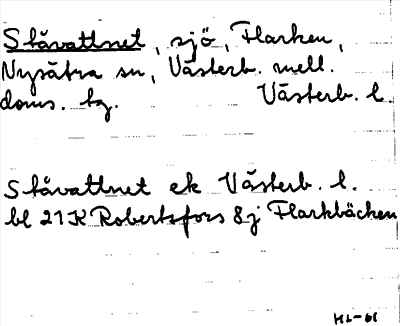 Ståvattnet, sjö, Flarken,
Nysätra sn, Västerb. mell.
doms. tg. Västerb. l.
Ståvattnet ek Västerb. l.
bl 21K Robertsfors 8j Flarkbäcken
HL-61